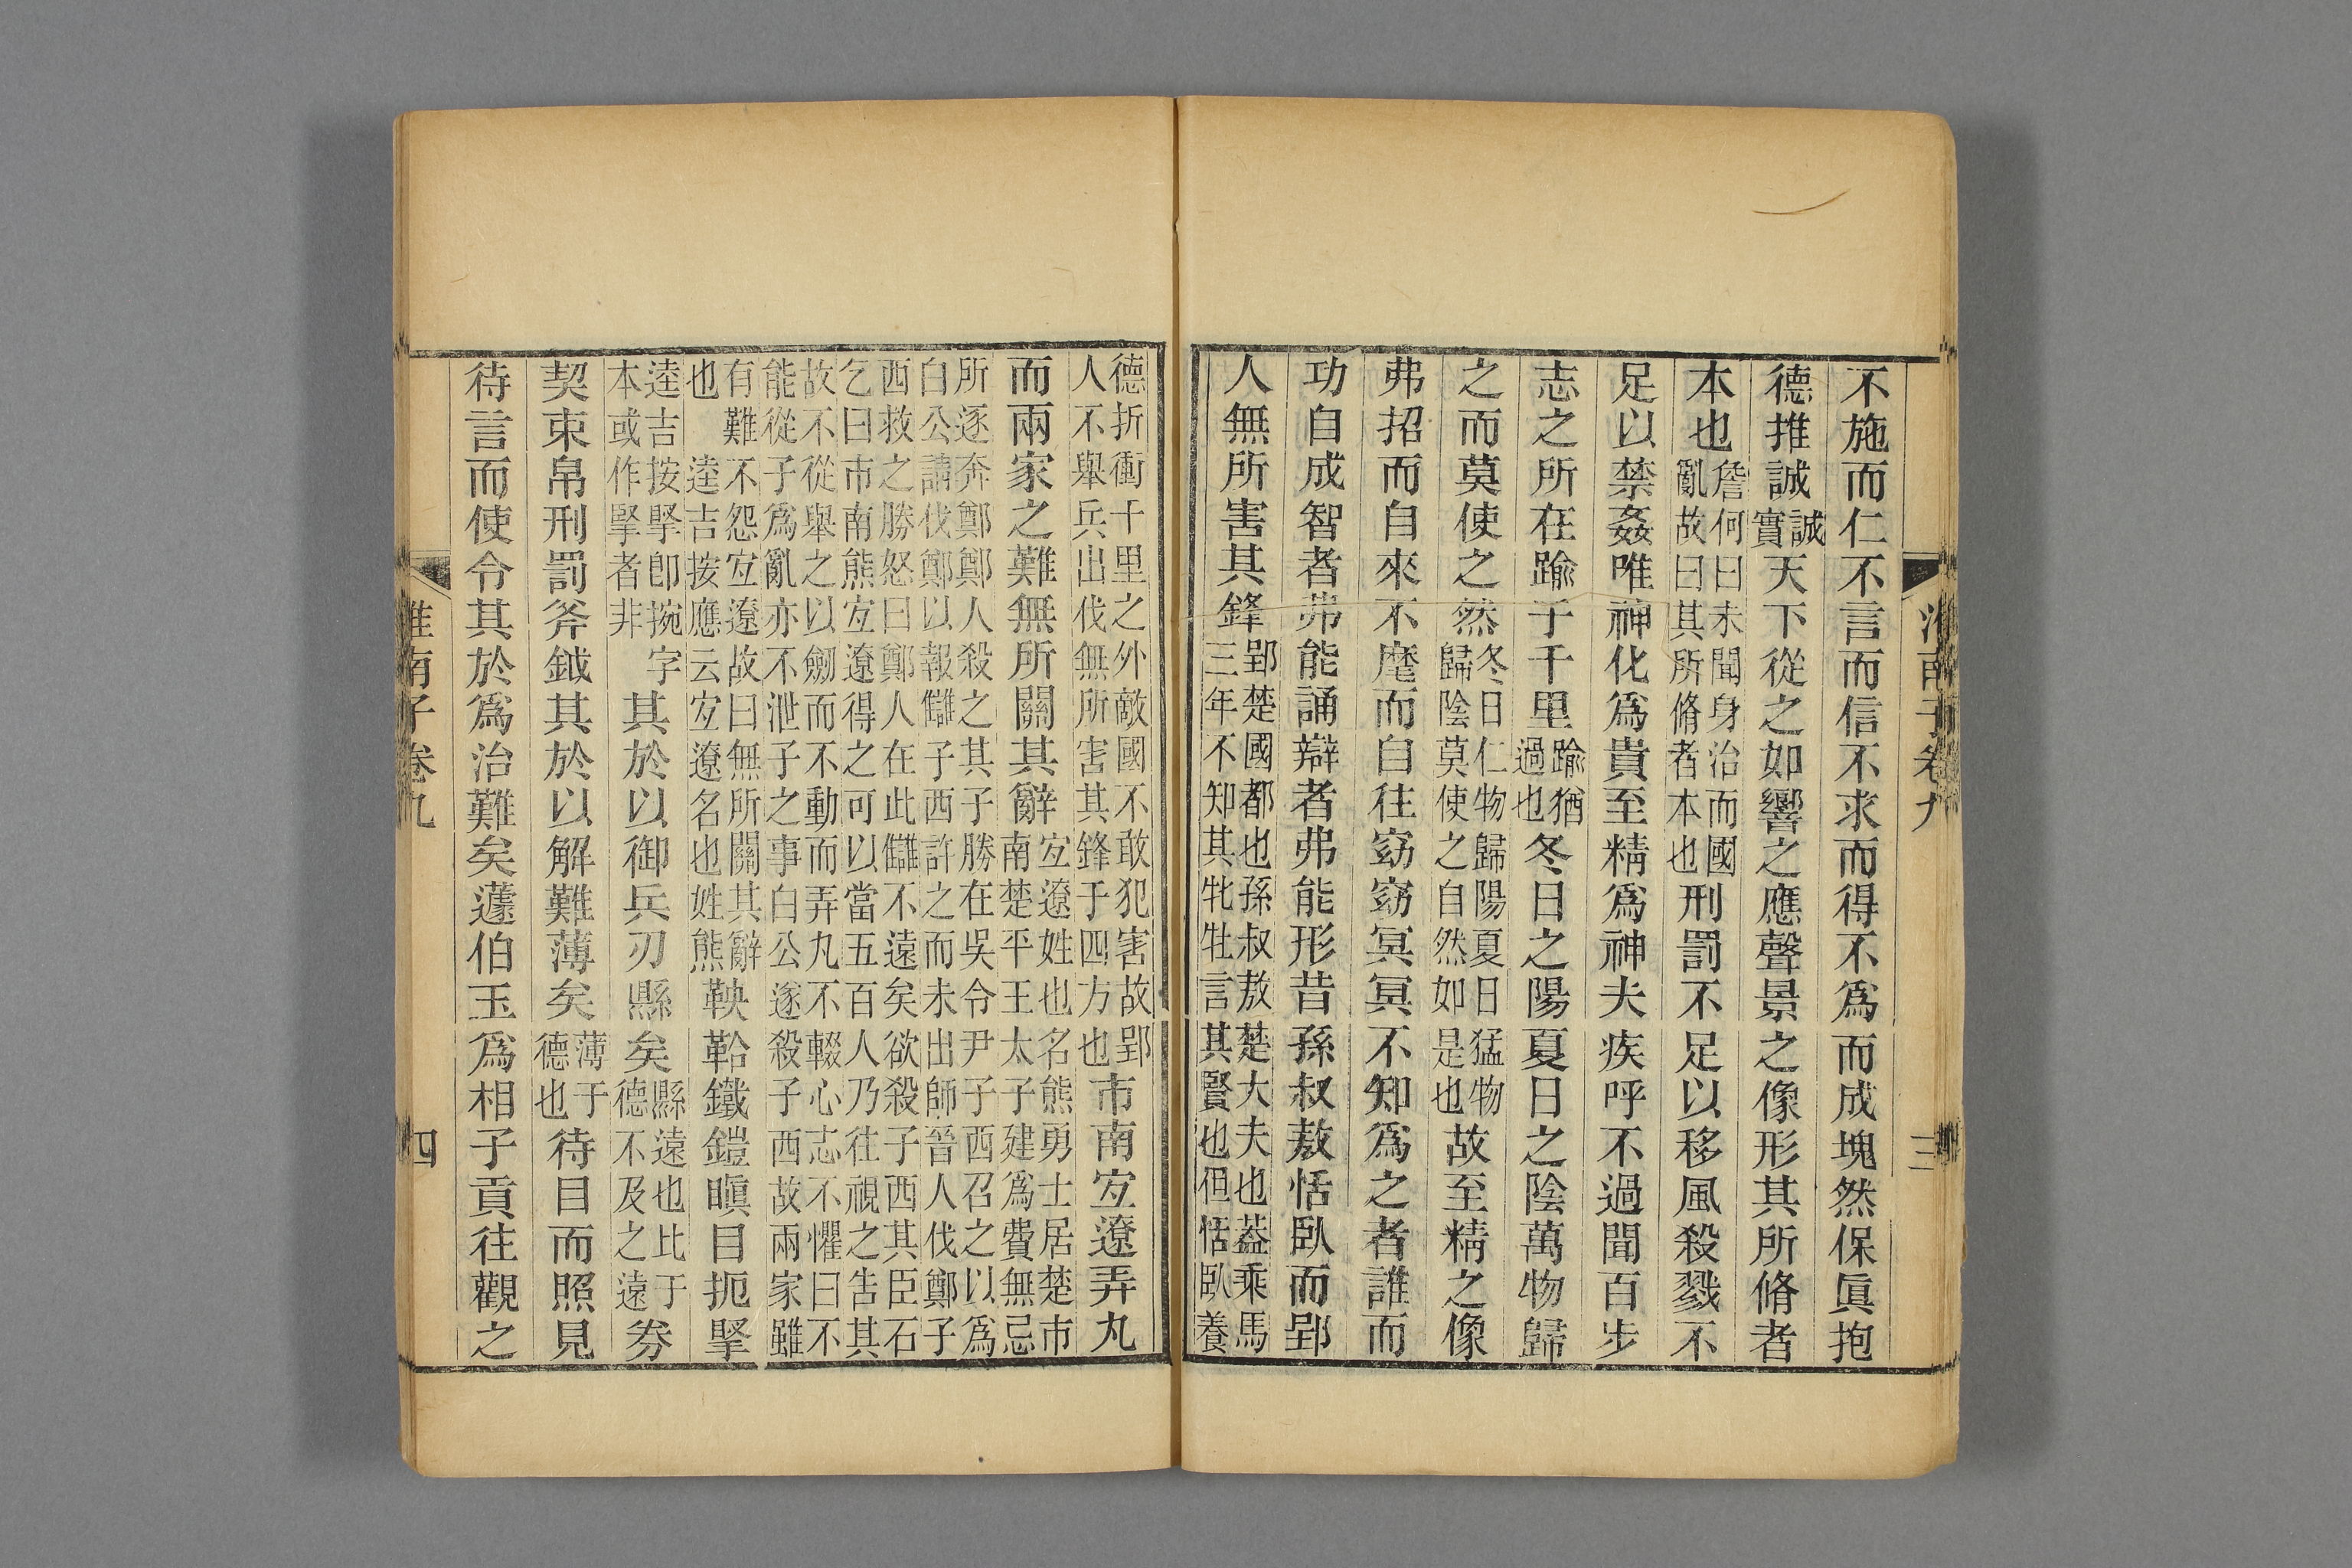 淮南子卷九
三
不施而仁不言而信不求而得不爲而成塊然保眞抱
德推誠誠實天下從之如響之應聲景之像形其所脩者
本也詹何曰未聞身治而國亂故曰其所脩者本也刑罰不足以移風殺戮不
足以禁姦唯神化爲貴至精爲神夫疾呼不過聞百步
志之所在踰于千里踰猶過也冬日之陽夏日之陰萬物歸
之而莫使之然冬日仁物歸陽夏日猛物歸陰莫使之自然如是也故至精之像
弗招而自來不麾而自往窈窈冥冥不知爲之者誰而
功自成智者弗能誦辯者弗能形昔孫叔敖恬臥而郢
人無所害其鋒郢楚國都也孫叔敖楚大夫也葢乘馬三年不知其牝牡言其賢也但恬臥養
德折衝千里之外敵國不敢犯害故郢人不舉兵出伐無所害其鋒于四方也市南宐遼弄丸
而兩家之難無所關其辭宐遼姓也名熊勇士居楚市南楚平王太子建爲費無忌
所逐奔鄭鄭人殺之其子勝在吳令尹子西召之以爲白公請伐鄭以報讎子西許之而未出師晉人伐鄭子
西救之勝怒曰鄭人在此讎不遠矣欲殺子西其臣石乞曰市南熊宐遼得之可以當五百人乃往視之告其
故不從舉之以劒而不動而弄丸不輟心志不懼曰不能從子爲亂亦不泄子之事白公遂殺子西故兩家雖
有難不怨宐遼故曰無所關其辭也 逵吉按應云宐遼名也姓熊鞅鞈鐵鎧瞋目扼掔
逵吉按掔卽捥字本或作掔者非其於以御兵刃縣矣縣遠也比于德不及之遠劵
契束帛刑罰斧鉞其於以解難薄矣薄于德也待目而照見
待言而使令其於爲治難矣蘧伯玉爲相子貢往觀之
淮南子卷九
四